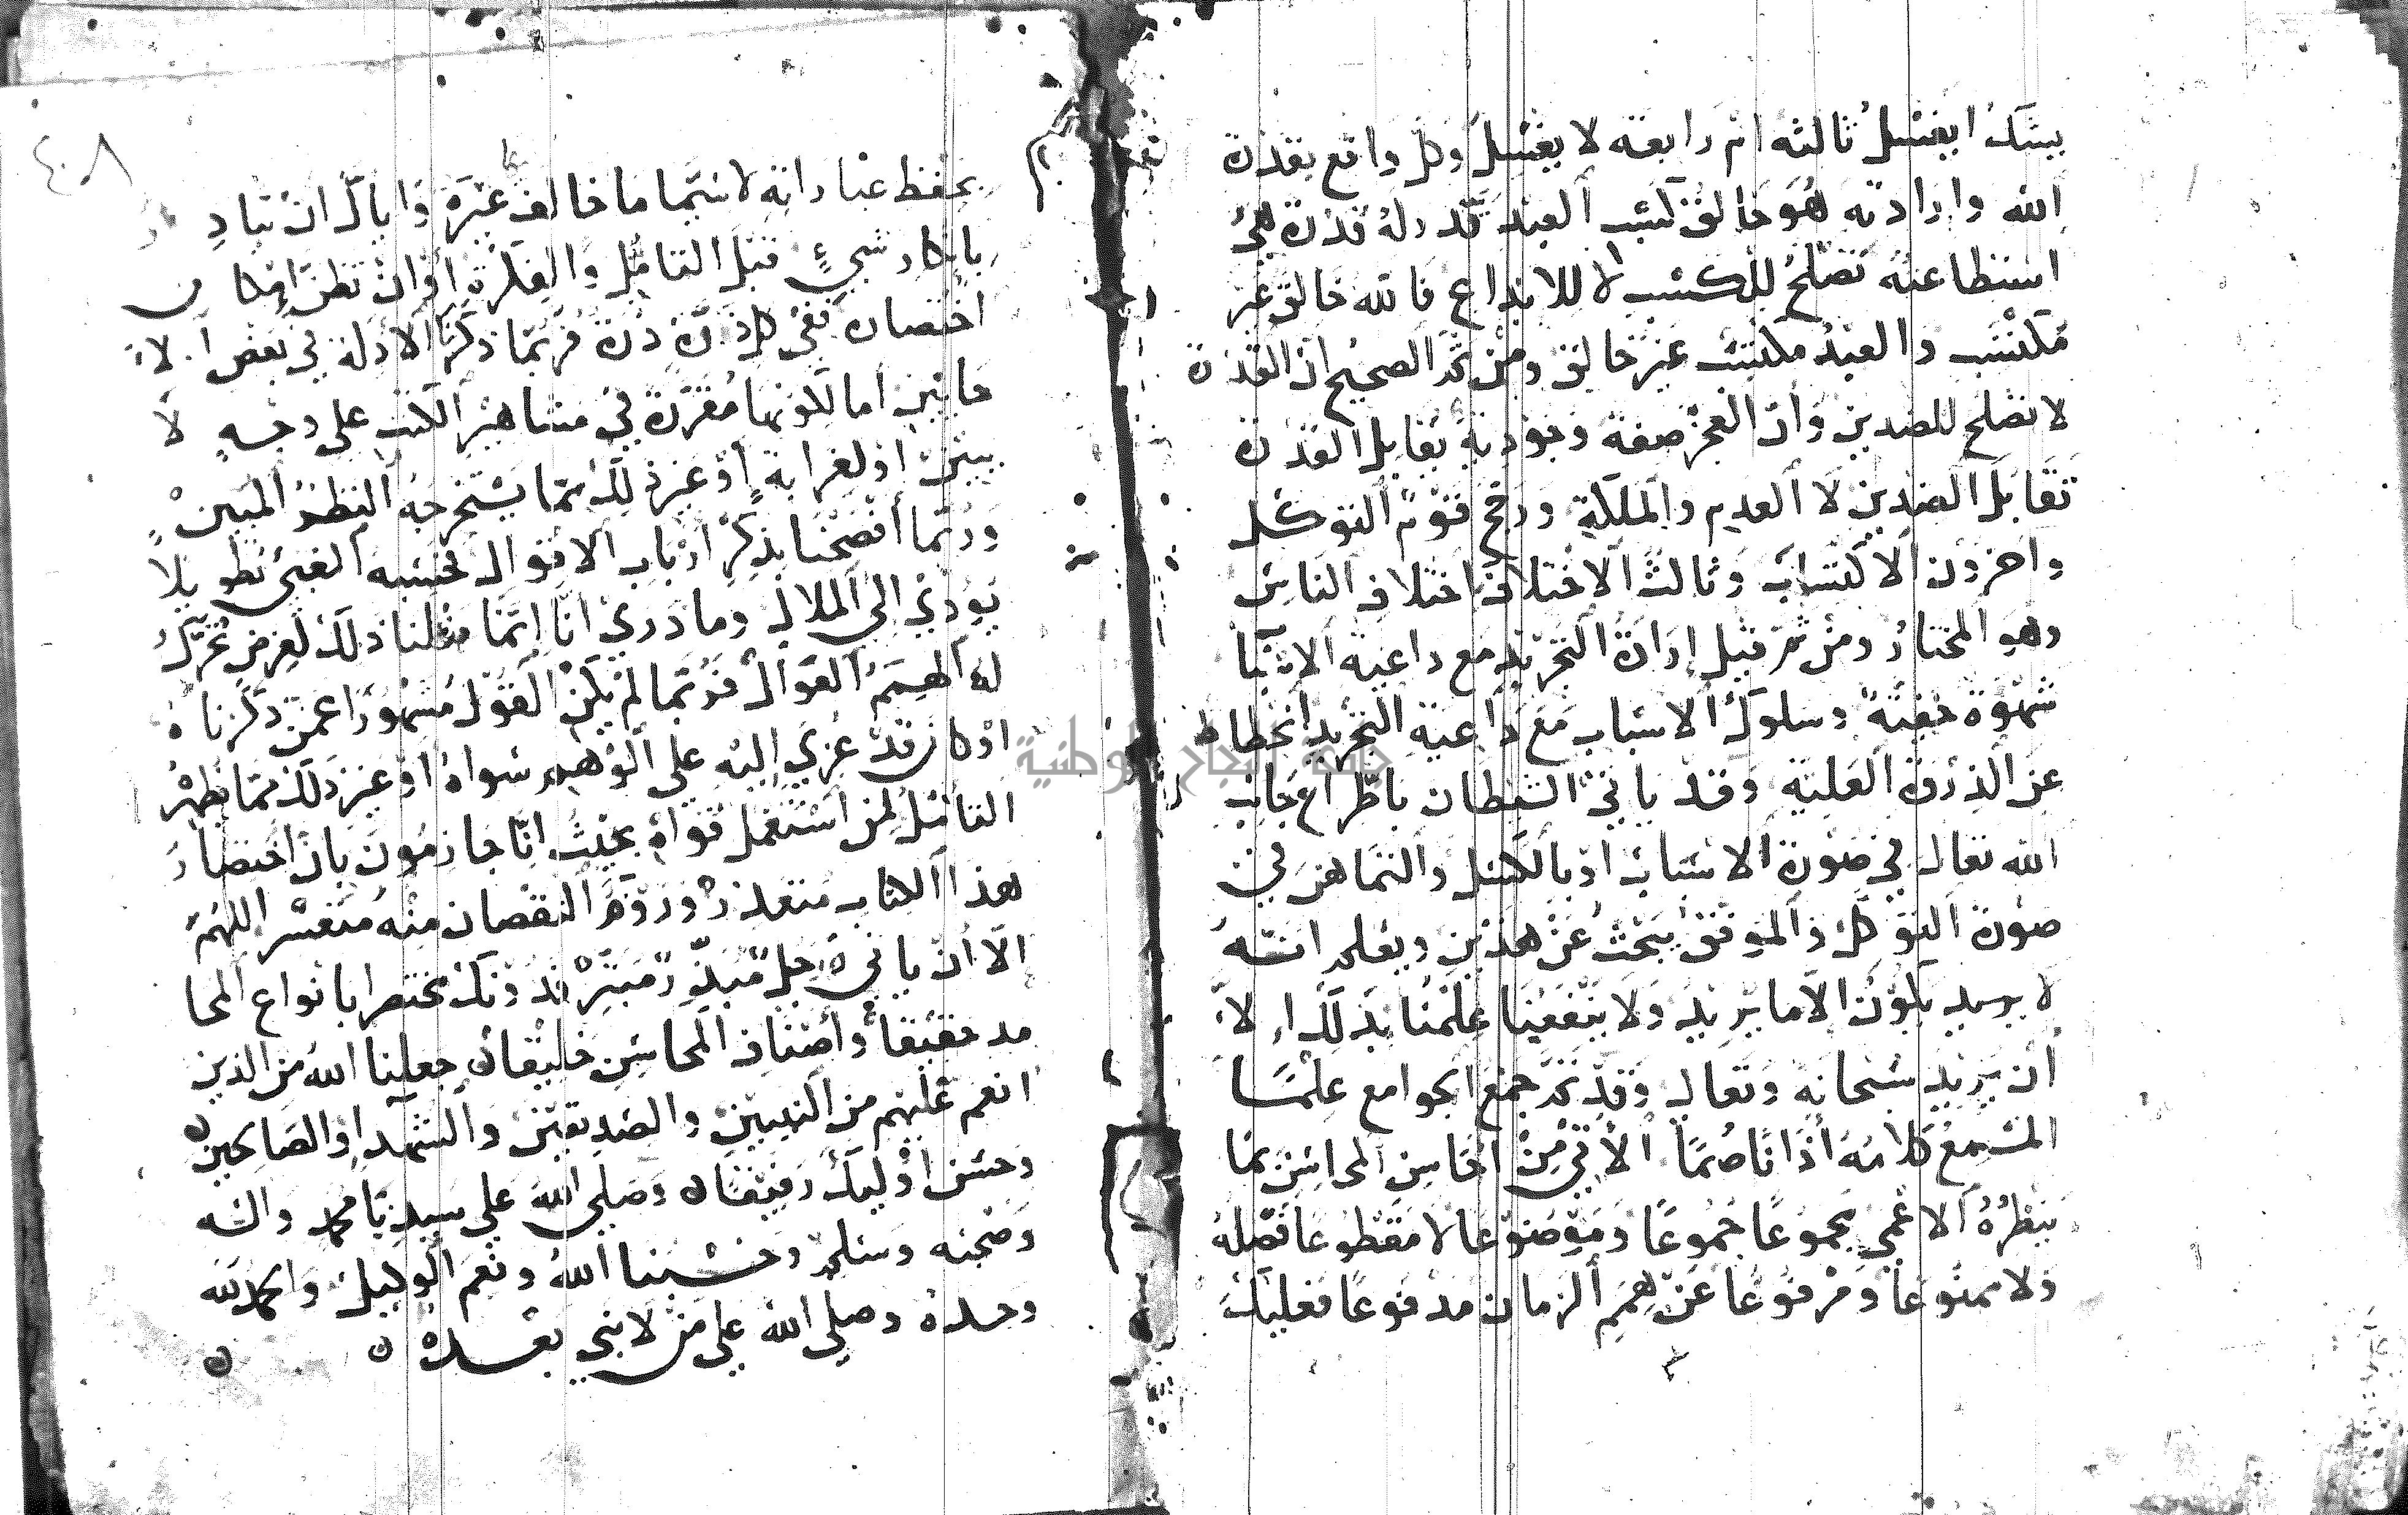 يشك ايغسل ثالثه ام رابعه لا يغسل وكل واقع بقدرة
الله وارادته هو خالق كسب العبد قدر له قدرة هي
استطاعته تصلح للكسب لا للابداع فالله خالق غير
مكتسب والعبد مكتسب غير خالق ومن ثم الصحيح ان القدرة
لا تصلح للضدين وان العجز صفة وجودية يقابل القدرة
تقابل الضدين لا العدم والملكة ورجح قوم التوكل
واخرون الاكتساب وثالث الاختلاف باختلاف الناس
وهو المختار ومن ثم قيل ارادة التجريد مع داعية الاسباب
شهوة خفية وسلوك الاسباب مع داعية التجريد انحطاط
عن الذروة العلية وقد ياتي الشيطان باطراح جانب
الله تعالى في صورة الاسباب او بالكسل والتماهن في
صورة التوكل والموفق يبحث عن هذين ويعلم انه
لا يريد يكون الا ما يريد ولا ينفعنا علمنا بذلك الا
ان يريد سبحانه وتعالى وقد تم جمع الجوامع علما
المسمع كلامه اذانا صما الاتي من احاسن المحاسن بما
ينظره الاعمى مجموعا جموعا وموضوعا لا مقطوعا فضله
ولا ممنوعا ومرفوعا عن همم الزمان مدفوعا فعليك
٤٠٨
بحفظ عباراته لا سيما ما خالف غيره واياك ان تبادر
بانكار شيء قبل التامل والفكرة او ان تظن امكان
اختصاره ففي كل ذرة درة فربما ذكرنا الادلة في بعض الا
حايين اما لكونها مقررة في مشاهير الكتب على وجه لا
يبين او لغرابة او غير ذلك مما يستخرجه النظر المبين
وربما افصحنا بذكر ارباب الاقوال فحسبه الغبي تطويلا
يودي الى الملال وما دري انا انما فعلنا ذلك لغرض تحرك
له الهمم العوال فربما لم يكن القول مشهورا عمن ذكرناه
او كان قد عزي اليه على الوهم سواه او غير ذلك مما يظهره
التامل لمن استعمل قواه بحيث انا جازمون بان اختصار
هذا الكتاب متعذر وروم النقصان منه متعسر اللهم
الا ان ياتي رجل مبذر مبتر فدونك مختصرا بانواع المحا
مد حقيقا واصناف المحاسن خليقا جعلنا الله من الذين
انعم عليهم من النبيين والصديقين والشهدا والصالحين
وحسن اوليك رفيقا وصلى الله على سيدنا محمد واله
وصحبه وسلم وحسبنا الله ونعم الوكيل والحمد لله
وحده وصلى الله على من لا نبي بعده
جامعة النجاح الوطنية